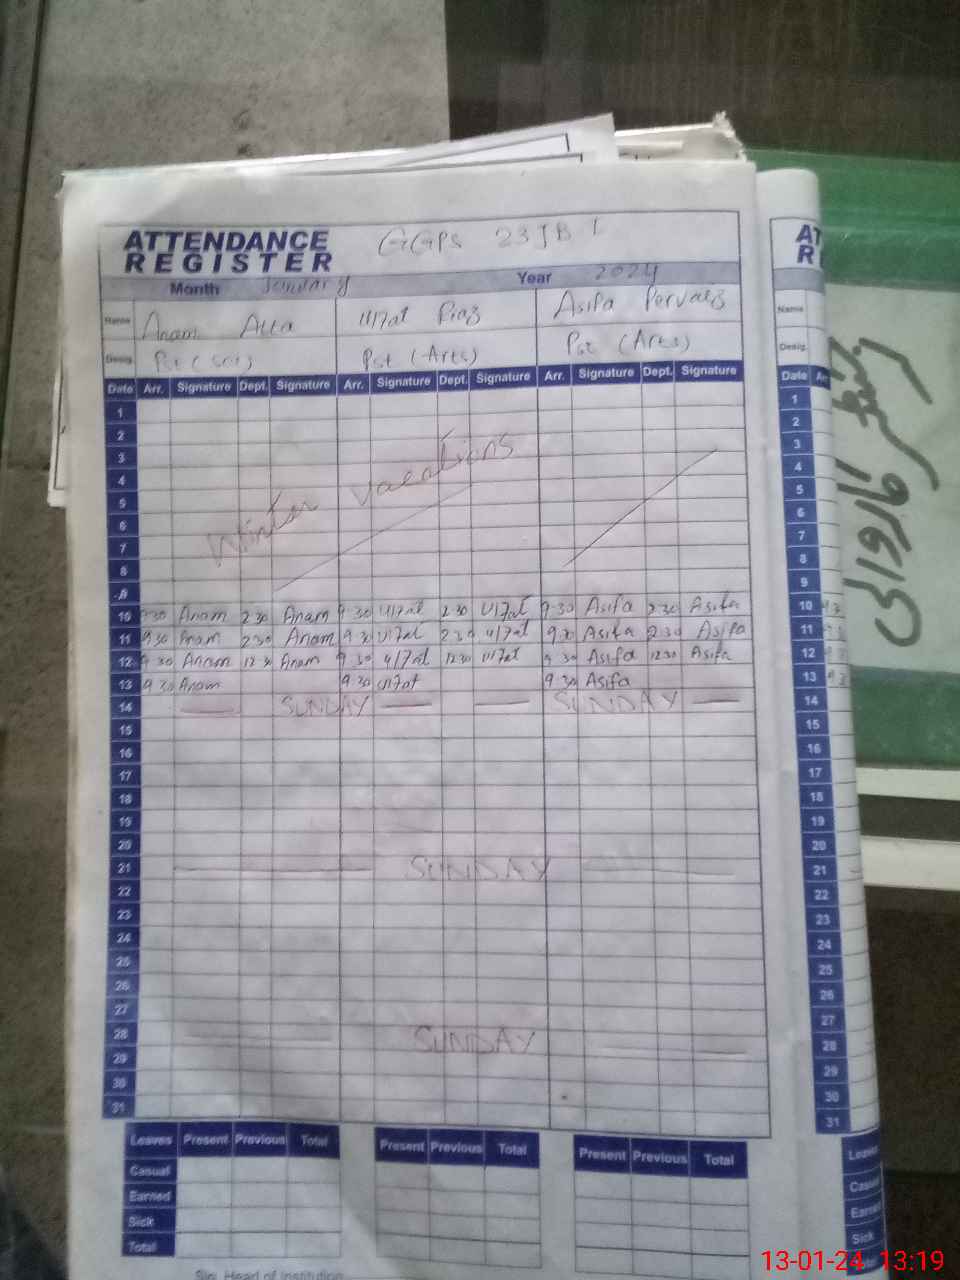 ATTENDANCE REGISTER GGPS 23 JB I
Month January Year 2024
Name Anam Atta U17at Riaz Asifa Pervaiz
Desig. Pst (Sci) Pst (Arts) Pst (Arts)
Date Arr. Signature Dept. Signature Arr. Signature Dept. Signature Arr. Signature Dept. Signature
1
2
3
4
5
6
7
8
9
Winter Vacations
10 9:30 Anam 2:30 Anam 9:30 U17at 2:30 U17at 9:30 Asifa 2:30 Asifa
11 9:30 Anam 2:30 Anam 9:30 U17at 2:30 U17at 9:30 Asifa 2:30 Asifa
12 9:30 Anam 12:30 Anam 9:30 U17at 12:30 U17at 9:30 Asifa 12:30 Asifa
13 9:30 Anam 9:30 U17at 9:30 Asifa
14 SUNDAY SUNDAY
15
16
17
18
19
20
21 SUNDAY
22
23
24
25
26
27
28 SUNDAY
29
30
31
Leaves Present Previous Total Present Previous Total Present Previous Total
Casual
Earned
Sick
Total
Sig. Head of Institution
Name
Desig.
Date
1
2
3
4
5
6
7
8
9
10
11
12
13
14
15
16
17
18
19
20
21
22
23
24
25
26
27
28
29
30
31
Leaves
Sick
13-01-24 13:19